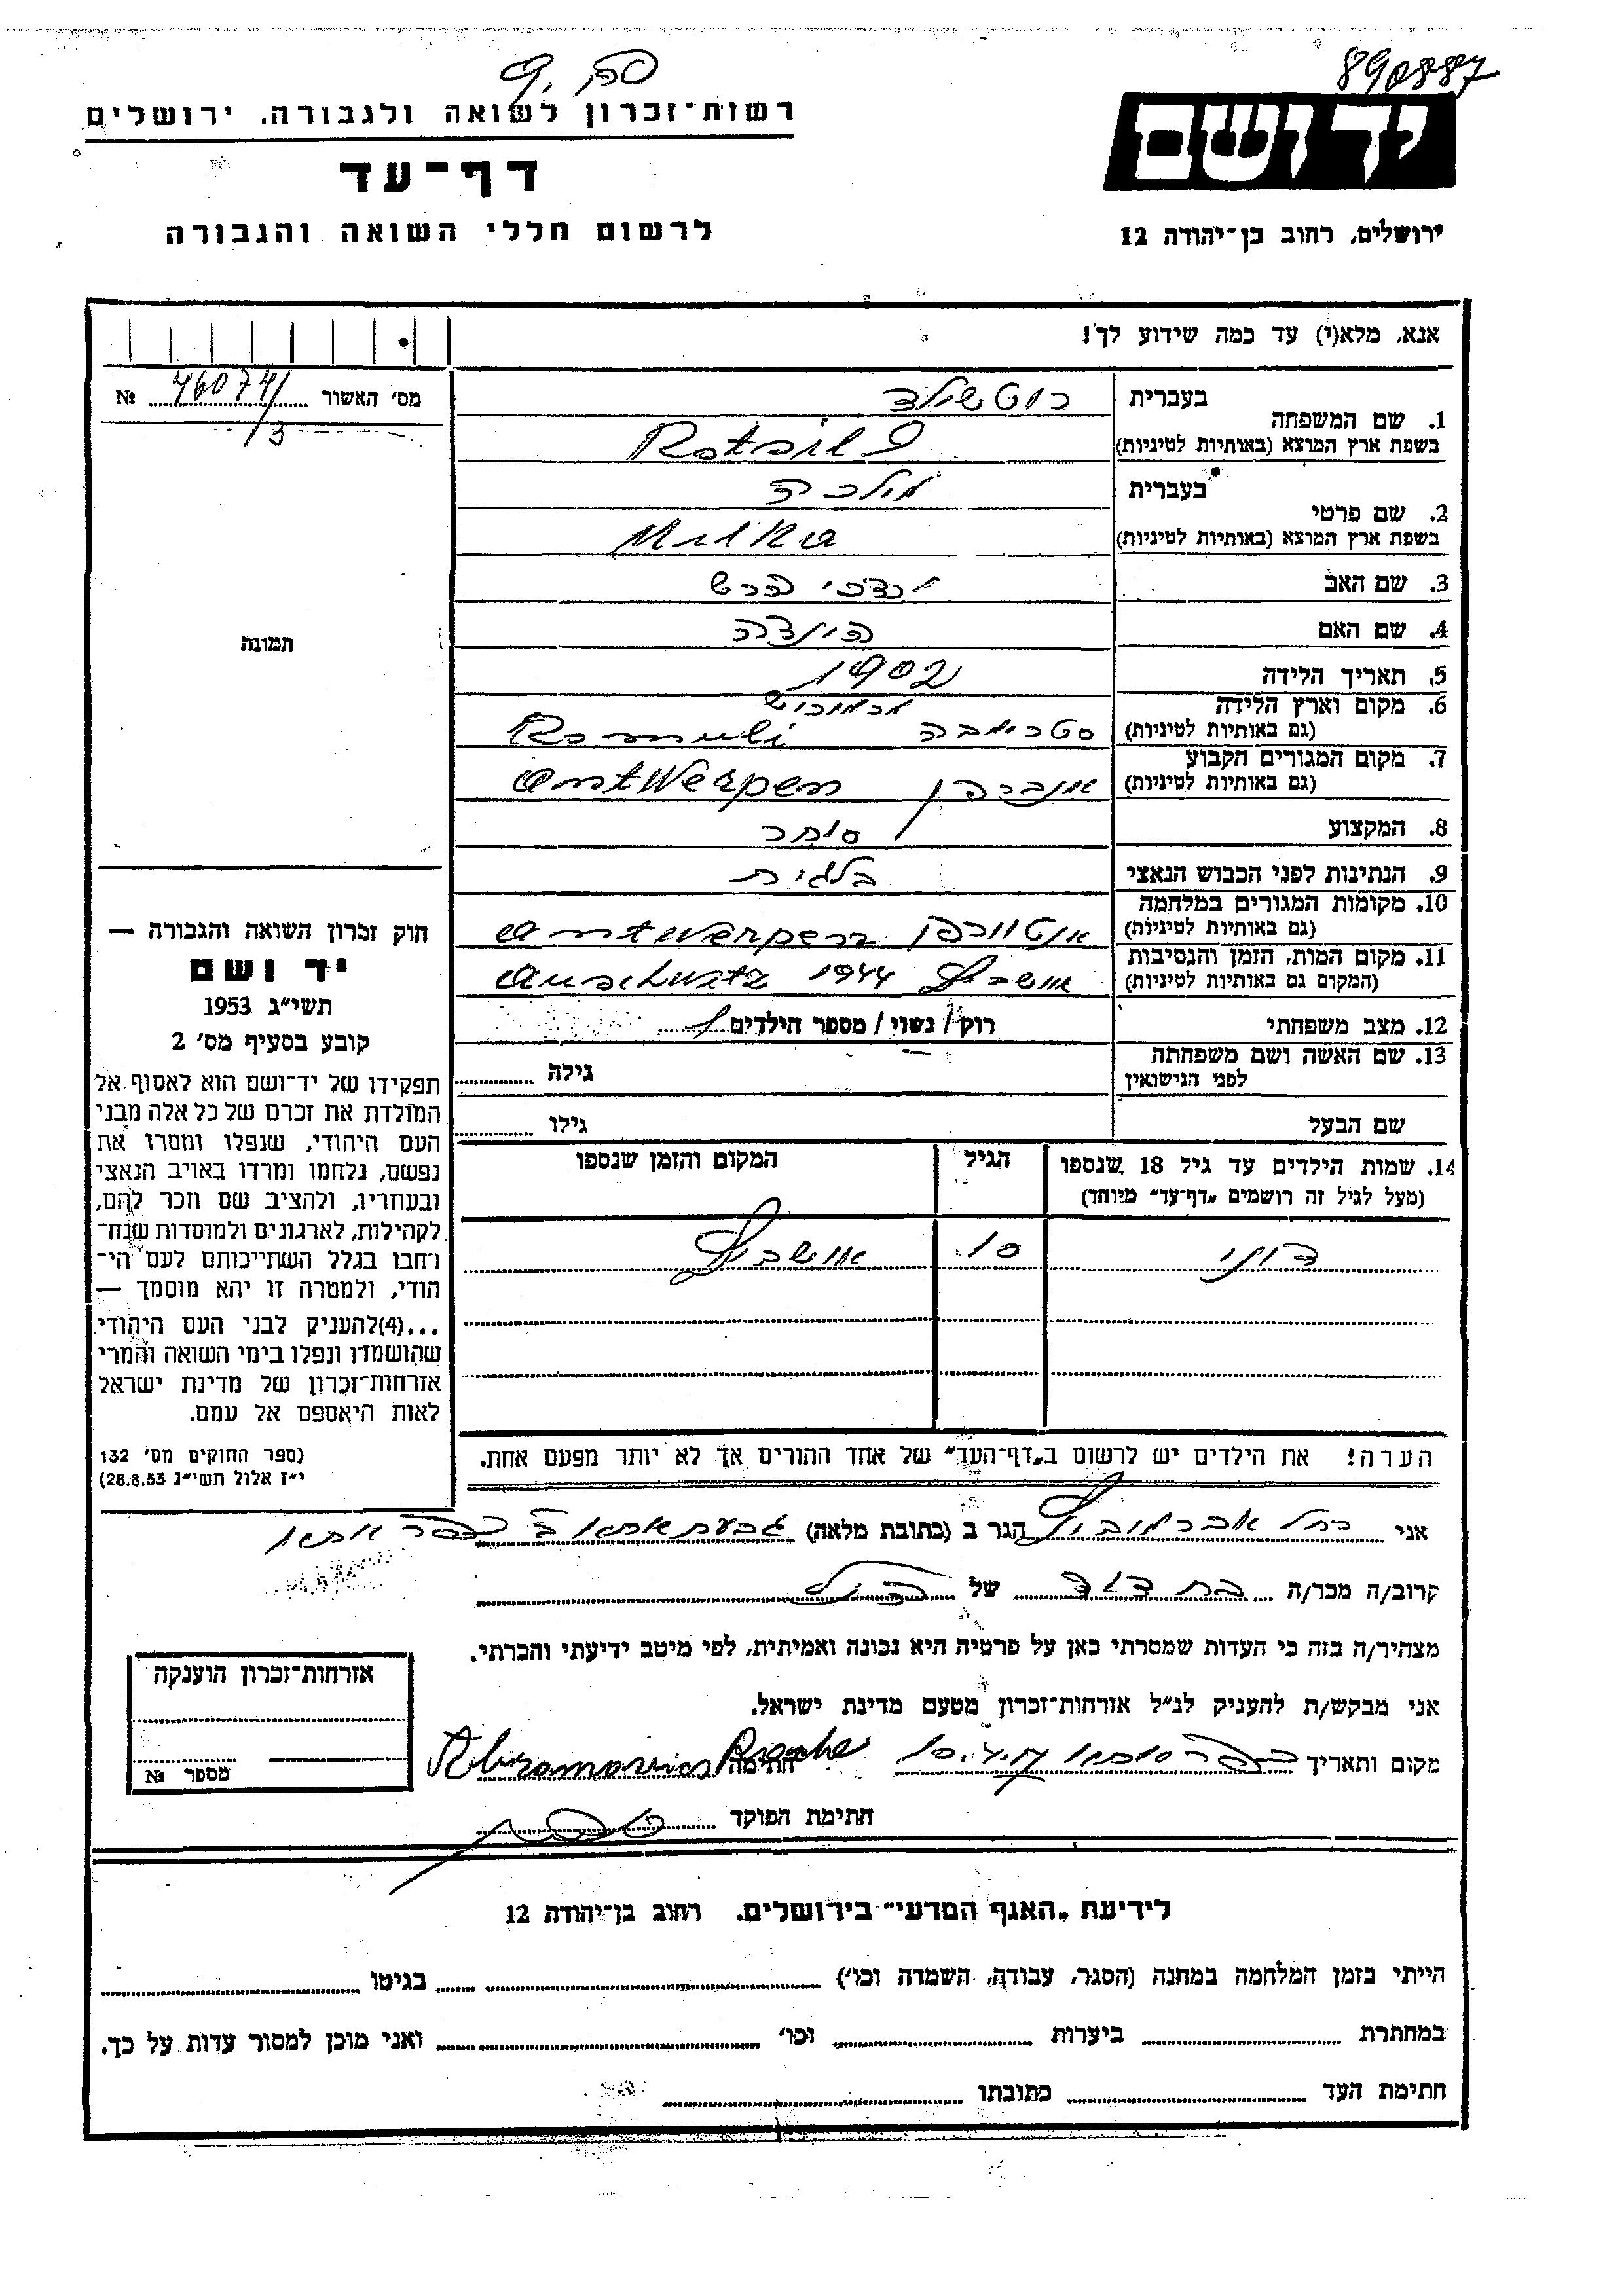 890887
רשות־זכרון לשואה ולגבורה, ירושלים
דף־עד
לרשום חללי השואה והגבורה
ידושם
ירושלים, רחוב בן־יהודה 12
אנא, מלא(י) עד כמה שידוע לך!
מס' האשור 460741 №
/3
תמונה
1. שם המשפחה בעברית רוטשילד
בשפת ארץ המוצא (באותיות לטיניות) Rotsild
2. שם פרטי בעברית מילכה
בשפת ארץ המוצא (באותיות לטיניות) Milka
3. שם האב הרש
4. שם האם הינדה
5. תאריך הלידה 1902
6. מקום וארץ הלידה
(גם באותיות לטיניות) Romuli
7. מקום המגורים הקבוע
(גם באותיות לטיניות) אנברפן antwerpen
8. המקצוע סוחר
9. הנתינות לפני הכבוש הנאצי בלגית
10. מקומות המגורים במלחמה
(גם באותיות לטיניות) אנטוורפן antwerpen
11. מקום המות, הזמן והנסיבות
(המקום גם באותיות לטיניות) אושביץ 1944 auschwitz
12. מצב משפחתי רוק / נשוי / מספר הילדים 1
13. שם האשה ושם משפחתה
לפני הנישואין גילה
שם הבעל גילו
14. שמות הילדים עד גיל 18 שנספו
(מעל לגיל זה רושמים „דף־עד" מיוחד)
הגיל
המקום והזמן שנספו
דוני 10 אושביץ
הערה! את הילדים יש לרשום ב„דף־העד" של אחד ההורים אך לא יותר מפעם אחת.
חוק זכרון השואה והגבורה —
יד ושם
תשי"ג 1953
קובע בסעיף מס' 2
תפקידו של יד־ושם הוא לאסוף אל
המולדת את זכרם של כל אלה מבני
העם היהודי, שנפלו ומסרו את
נפשם, נלחמו ומרדו באויב הנאצי
ובעוזריו, ולהציב שם וזכר להם,
לקהילות, לארגונים ולמוסדות שנח־
רחבו בגלל השתייכותם לעם הי־
הודי, ולמטרה זו יהא מוסמך —
...(4)להעניק לבני העם היהודי
שהושמדו ונפלו בימי השואה והמרי
אזרחות־זכרון של מדינת ישראל
לאות היאספם אל עמם.
(ספר החוקים מס' 132
י"ז אלול תשי"ג 28.8.53)
אני רחל אברמוביץ הגר ב (כתובת מלאה) גבעת אתא ב כפר אתא
קרוב/ה מכר/ה בת דוד של
מצהיר/ה בזה כי העדות שמסרתי כאן על פרטיה היא נכונה ואמיתית, לפי מיטב ידיעתי והכרתי.
אני מבקש/ת להעניק לנ"ל אזרחות־זכרון מטעם מדינת ישראל.
מקום ותאריך כפר אתא חתימה Abramovics
חתימת הפוקד
אזרחות־זכרון הוענקה
מספר №
לידיעת „האגף המדעי" בירושלים, רחוב בן־יהודה 12
הייתי בזמן המלחמה במחנה (הסגר, עבודה, השמדה וכו') בגיטו
במחתרת ביערות וכו' ואני מוכן למסור עדות על כך.
חתימת העד כתובתו